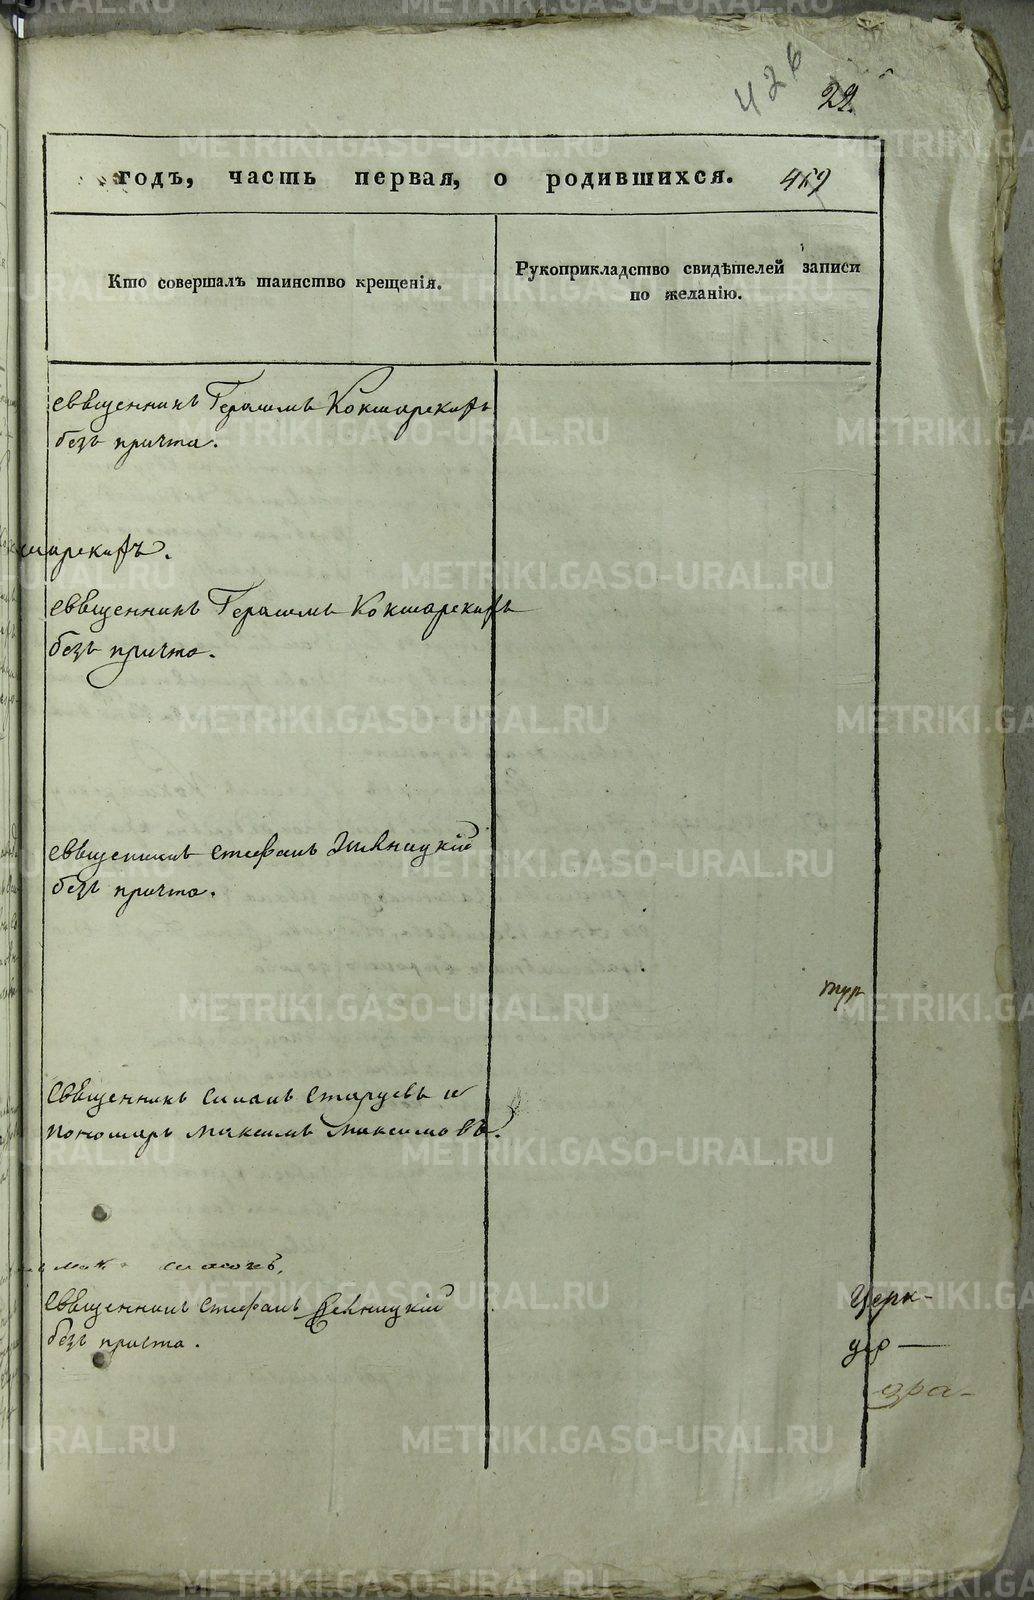 426
22.
годъ, часть первая, о родившихся. 459
Кто совершалъ таинство крещенія.
Рукоприкладство свидѣтелей записи
по желанію.
священникъ Герасимъ Кокшарскихъ
безъ причта.
кшарскихъ.
священникъ Герасимъ Кокшарскихъ
безъ причта.
священникъ стефанъ
безъ причта.
священникъ Симанъ Старцевъ и
пономарь максимъ максимовъ.
священникъ стефанъ
безъ причта.
Церк-